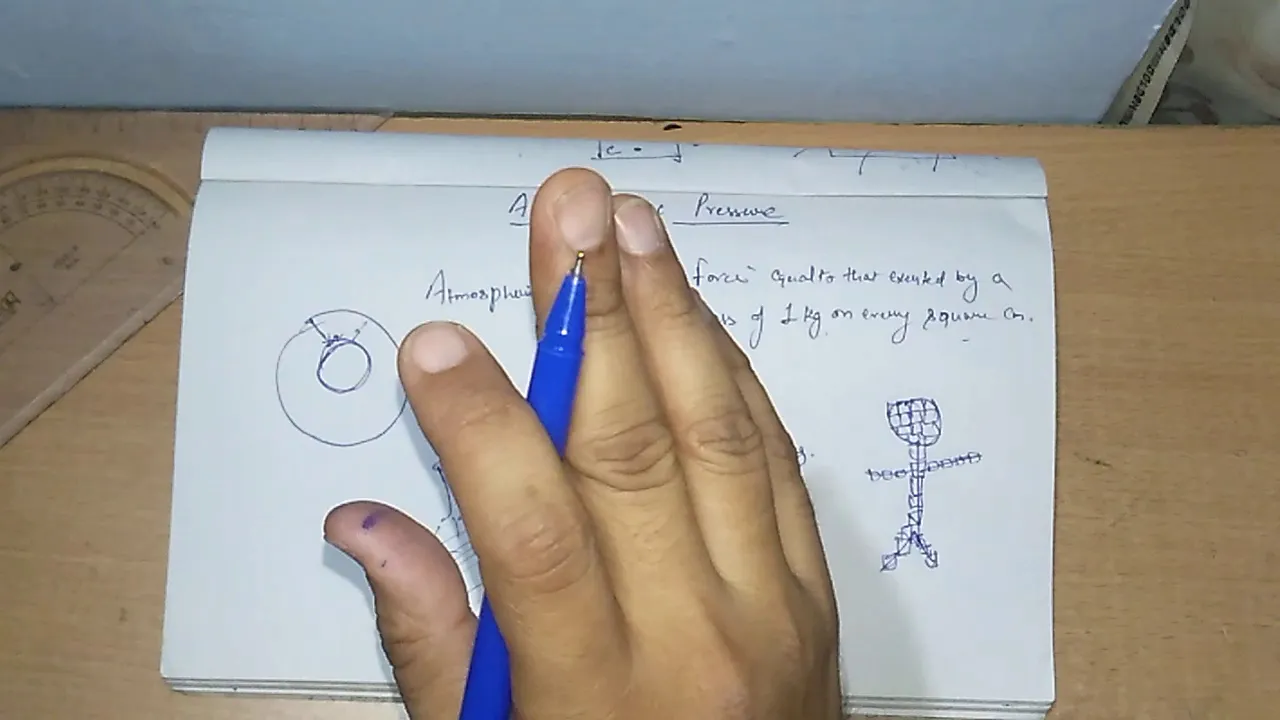 Pressure
Atmospheri force equal to that exerted by a
of 1 Kg on every square cm.